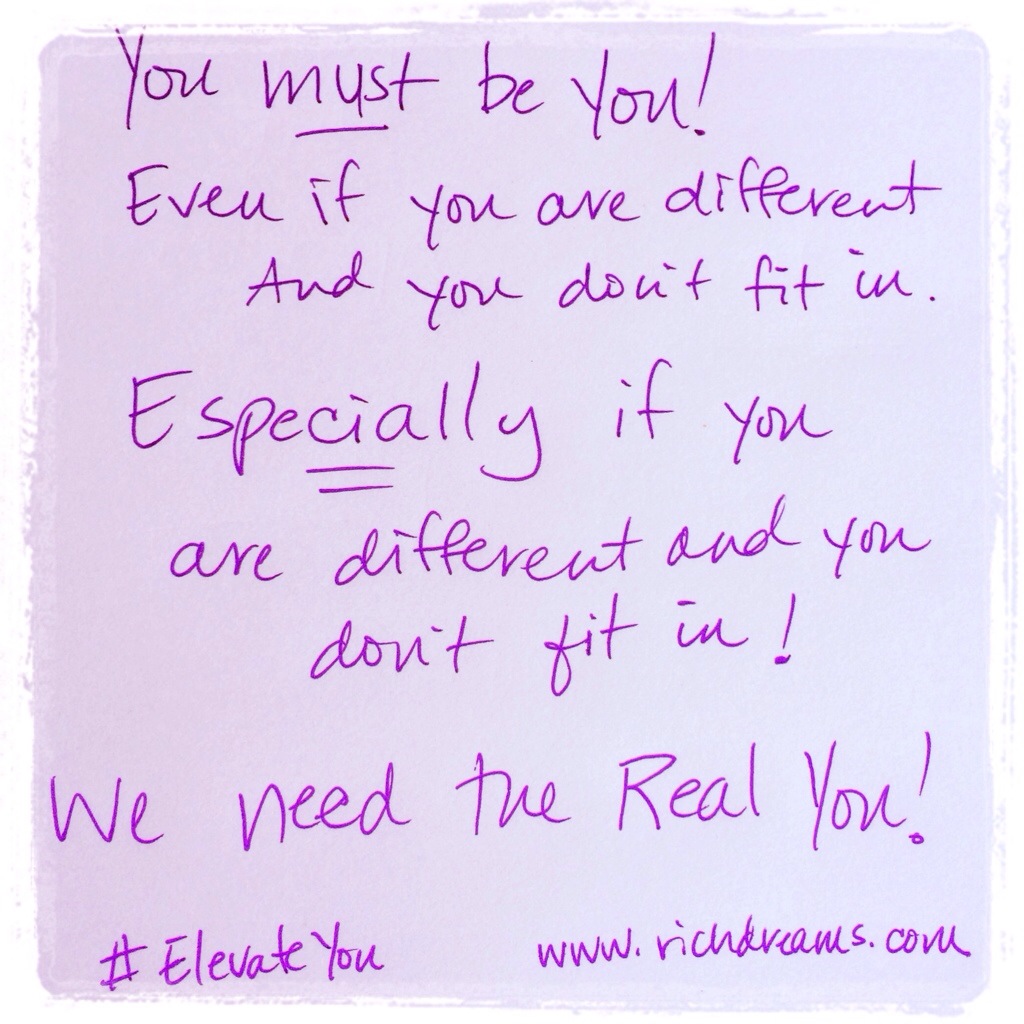 You must be You!
Even if you are different
And you don't fit in.
Especially if you
are different and you
don't fit in!
We need the Real You!
#ElevateYou www.richdreams.com